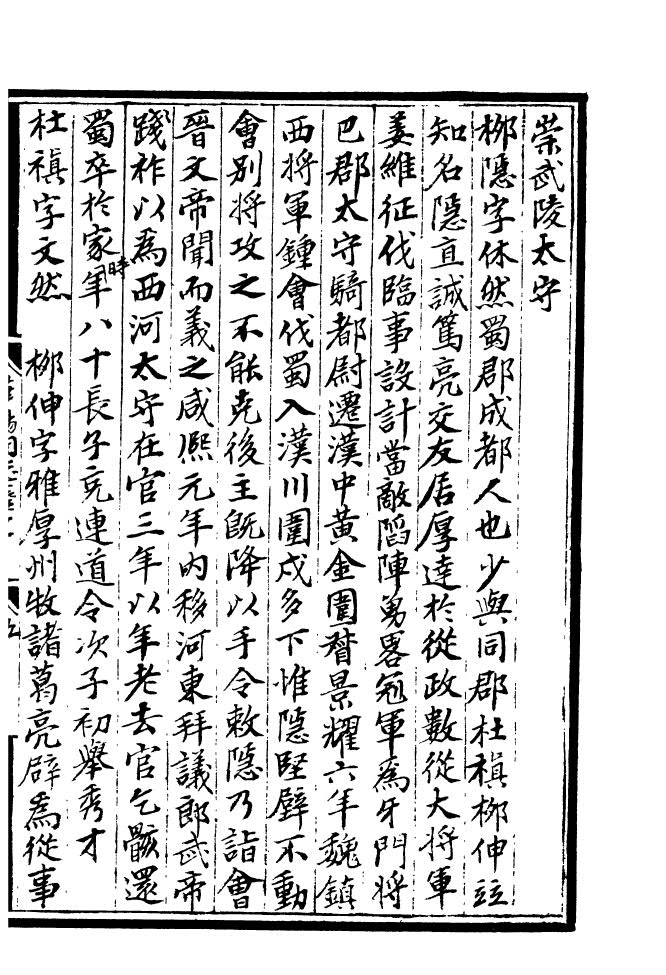 崇武陵太守
栁隱字休然蜀郡成都人也少與同郡杜禎栁伸竝
知名隱直誠篤亮交友居厚達於從政數從大將軍
姜維征伐臨事設計當敵蹈陣勇畧冠軍為牙門將
巴郡太守騎都尉遷漢中黃金圍督景耀六年魏鎮
西將軍鍾會伐蜀入漢川圍戍多下惟隱堅壁不動
會别將攻之不能克後主既降以手令敕隱乃詣會
晉文帝聞而義之咸熈元年内移河東拜議郎武帝
踐祚以為西河太守在官三年以年老去官乞骸還
蜀卒於家時年八十長子充連道令次子初舉秀才
杜禎字文然　栁伸字雅厚州牧諸葛亮辟為從事
五